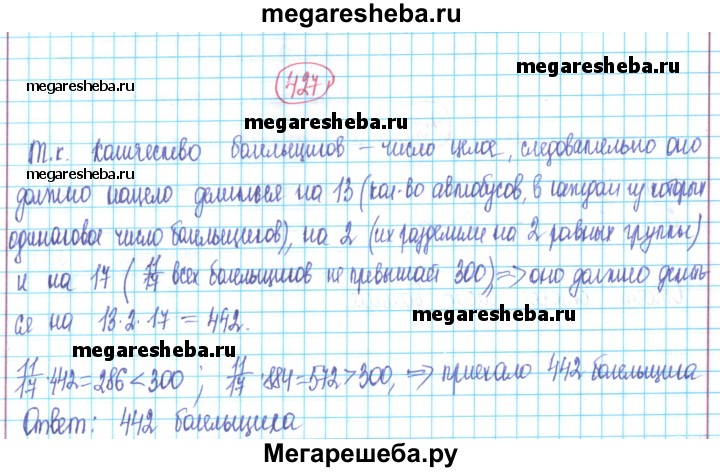 megaresheba.ru
427
megaresheba.ru
megaresheba.ru
megaresheba.ru
Т.к. количество болельщиков – число целое, следовательно оно
megaresheba.ru
должно нацело делиться на 13 (кол-во автобусов, в каждом из которых
одинаковое число болельщиков), на 2 (их разделили на 2 равных группы)
и на 17 (11/17 всех болельщиков не превышает 300) => оно должно делить-
ся на 13·2·17 = 442.
megaresheba.ru
megaresheba.ru
11/17·442=286<300 ; 11/17·884=572>300, => приехало 442 болельщика
Ответ: 442 болельщика
Мегарешеба.ру